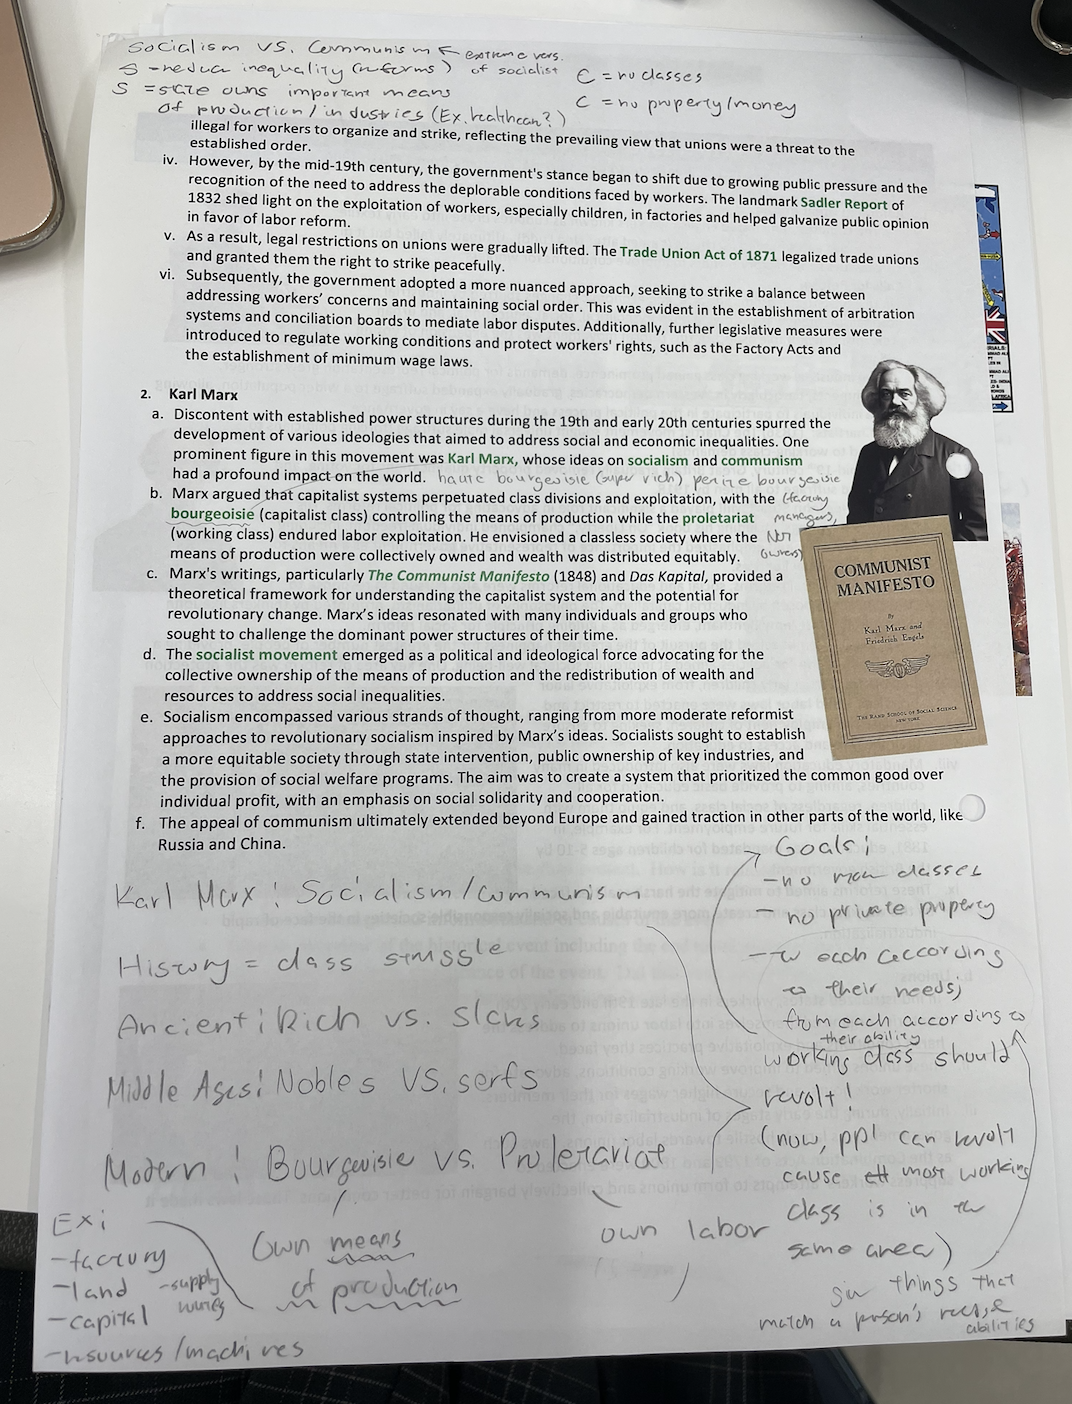 Socialism vs. Communism ← extreme vers. of socialist
S - reduce inequality (reforms)
S = state owns important means
of production/industries (Ex. healthcare?)
C = no classes
C = no property/money
illegal for workers to organize and strike, reflecting the prevailing view that unions were a threat to the
established order.
iv. However, by the mid-19th century, the government's stance began to shift due to growing public pressure and the
recognition of the need to address the deplorable conditions faced by workers. The landmark Sadler Report of
1832 shed light on the exploitation of workers, especially children, in factories and helped galvanize public opinion
in favor of labor reform.
v. As a result, legal restrictions on unions were gradually lifted. The Trade Union Act of 1871 legalized trade unions
and granted them the right to strike peacefully.
vi. Subsequently, the government adopted a more nuanced approach, seeking to strike a balance between
addressing workers' concerns and maintaining social order. This was evident in the establishment of arbitration
systems and conciliation boards to mediate labor disputes. Additionally, further legislative measures were
introduced to regulate working conditions and protect workers' rights, such as the Factory Acts and
the establishment of minimum wage laws.
2. Karl Marx
a. Discontent with established power structures during the 19th and early 20th centuries spurred the
development of various ideologies that aimed to address social and economic inequalities. One
prominent figure in this movement was Karl Marx, whose ideas on socialism and communism
had a profound impact on the world. haute bourgeoisie (super rich) petite bourgeoisie
b. Marx argued that capitalist systems perpetuated class divisions and exploitation, with the (factory
bourgeoisie (capitalist class) controlling the means of production while the proletariat managers,
(working class) endured labor exploitation. He envisioned a classless society where the Not
means of production were collectively owned and wealth was distributed equitably. owners)
c. Marx's writings, particularly The Communist Manifesto (1848) and Das Kapital, provided a
theoretical framework for understanding the capitalist system and the potential for
revolutionary change. Marx's ideas resonated with many individuals and groups who
sought to challenge the dominant power structures of their time.
COMMUNIST
MANIFESTO
By
Karl Marx and
Friedrich Engels
THE RAND SCHOOL OF SOCIAL SCIENCE
NEW YORK
d. The socialist movement emerged as a political and ideological force advocating for the
collective ownership of the means of production and the redistribution of wealth and
resources to address social inequalities.
e. Socialism encompassed various strands of thought, ranging from more moderate reformist
approaches to revolutionary socialism inspired by Marx's ideas. Socialists sought to establish
a more equitable society through state intervention, public ownership of key industries, and
the provision of social welfare programs. The aim was to create a system that prioritized the common good over
individual profit, with an emphasis on social solidarity and cooperation.
f. The appeal of communism ultimately extended beyond Europe and gained traction in other parts of the world, like
Russia and China.
Karl Marx: Socialism/Communism
History = class struggle
Ancient: Rich vs. Slaves
Middle Ages: Nobles vs. serfs
Modern: Bourgeoisie vs. Proletariat
Own means
of production
own labor
Ex:
-factory
-land
-supply
-capital
-resources/machines
Goals:
-no classes
- no private property
- to each according
to their needs;
from each according to
their ability
working class should
revolt!
(now, ppl can revolt
cause most working
class is in the
same area)
things that
match a person's
abilities